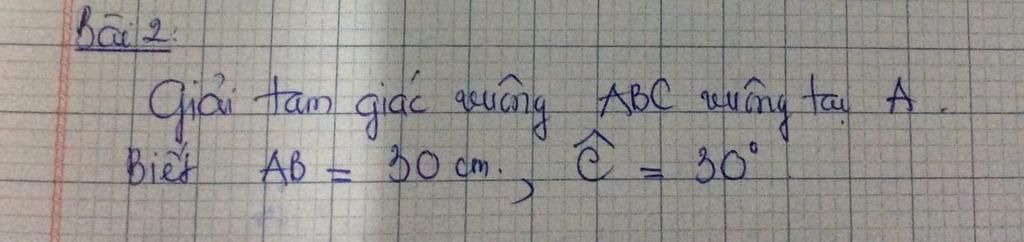 Bài 2:
Giải tam giác vuông ABC vuông tại A.
Biết AB = 30 cm., Ĉ = 30°